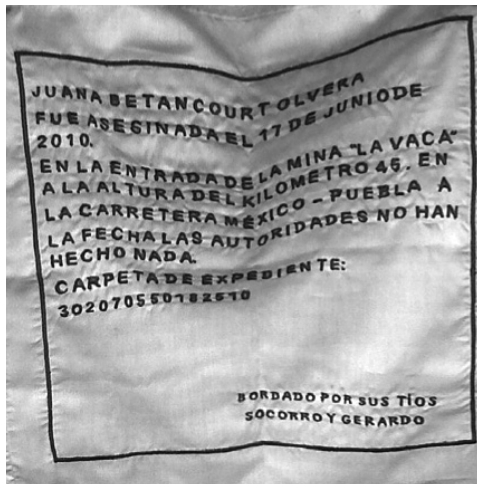 JUANA BETANCOURT OLVERA
FUE ASESINADA EL 17 DE JUNIO DE
2010.
EN LA ENTRADA DE LA MINA "LA VACA"
A LA ALTURA DEL KILOMETRO 45. EN
LA CARRETERA MÉXICO - PUEBLA A
LA FECHA LAS AUTORIDADES NO HAN
HECHO NADA.
CARPETA DE EXPEDIENTE:
302070550182510
BORDADO POR SUS TÍOS
SOCORRO Y GERARDO